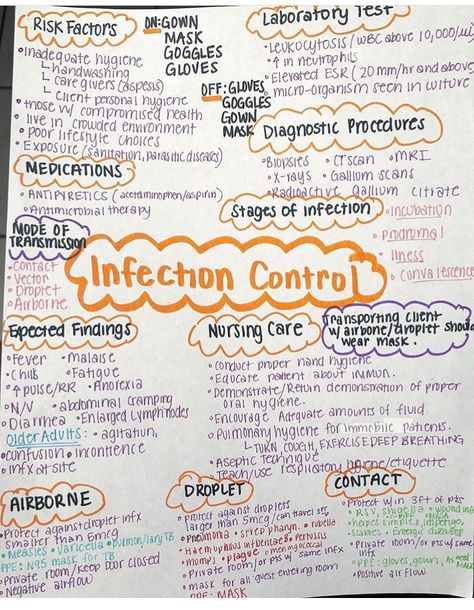 RISK FACTORS
•Inadequate hygiene
handwashing
caregivers (aspesis)
client personal hygiene
•those w/ compromised health
•live in crowded environment
•poor lifestyle choices
•Exposure (sanitation, parasitic diseases)
MEDICATIONS
•ANTIPYRETICS (acetaminophen/aspirin)
•Antimicrobial therapy
MODE OF TRANSMISSION
•Contact
•Vector
•Droplet
•Airborne
ON: GOWN
MASK
GOGGLES
GLOVES
OFF: GLOVES
GOGGLES
GOWN
MASK
Laboratory Test
•Leukocytosis/WBC above 10,000/
•↑ in neutrophils
•Elevated ESR (20 mm/hr and above)
•micro-organism seen in culture
Diagnostic Procedures
•Biopsies •CT scan •MRI
•X-rays •Gallium scans
•Radioactive gallium citrate
Stages of infection
•Incubation
•prodromal
•illness
•convalescence
Infection Control
Expected Findings
•Fever •malaise
•Chills •Fatigue
•↑pulse/RR •Anorexia
•N/V •abdominal cramping
•Diarrhea •Enlarged Lymph nodes
Older Adults: •agitation,
•confusion •incontience
•infx at site
Nursing Care
•Conduct proper hand hygiene
•Educate patient about immun.
•Demonstrate/Return demonstration of proper
oral hygiene.
•Encourage Adequate amounts of fluid
•Pulmonary hygiene for immobile patients.
TURN, COUGH, EXERCISE DEEP BREATHING
•Aseptic Technique
•Teach/use respiratory hygiene/etiquette
Transporting client
w/ airbone/droplet should
wear mask.
AIRBORNE
•Protect against droplet infx
smaller than 5mcg
•Measles •Varicella •pulmon/lary TB
PPE: N95 mask for TB
•Private room/keep door closed
•Negative airflow
DROPLET
•Protect against droplets
larger than 5mcg/can travel
•Pneumonia •strep pharyn. •rubella
•Haemophilus influenzae B •pertussis
•mumps •plague •meningococcal
•Private room/or pts w/ same infx
•mask for all guest entering room
PPE: MASK
CONTACT
•Protect w/in 3ft of pts
•RSV, shigella •wound infx
•herpes simplex, impetigo,
scabies
•Private room/or pts w/ same
infx
•PPE: gloves, gown,
•Positive airflow